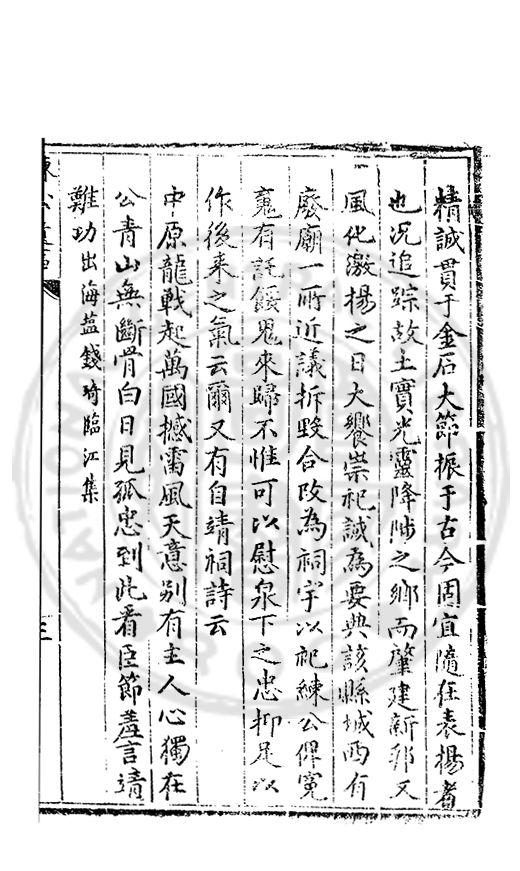 精誠貫于金石大節振于古今固宜隨在表揚者
也况追踪故土實光靈降陟之鄉而肇建新邦又
風化激揚之日大饗崇祀誠為要典該縣城西有
廢廟一所近議拆毀合改為祠宇以祀練公俾寃
䰟有託餒鬼來歸不惟可以慰泉下之忠抑足以
作後来之氣云爾又有自靖祠詩云
中原龍戰起萬國撼雷風天意别有主人心獨在
公青山無斷骨白日見孤忠到此看臣節羞言靖
難功出海盐錢琦臨江集